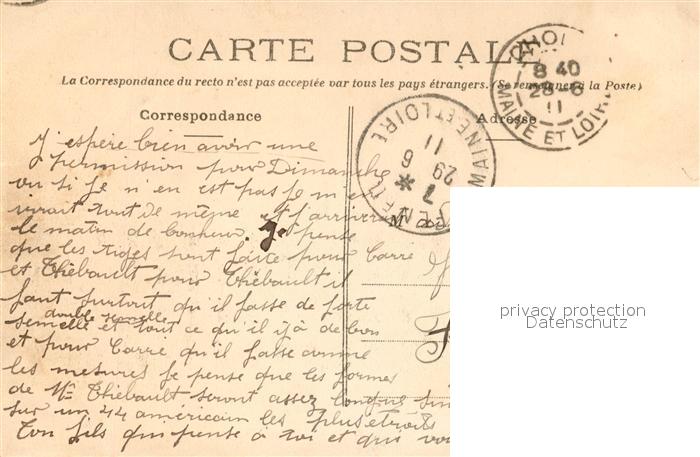 CARTE POSTALE
La Correspondance du recto n'est pas acceptée par tous les pays étrangers. (Se renseigner à la Poste)
CHOL
8 40
28-6
11
MAINE ET LOIRE
Correspondance
Adresse
MAINE ET LOIRE
7 *
29 6
11
M
J espère bien avoir une
permission pour Dimanche
ou si je n en est pas je m en
irait tout de même et j arriverai
le matin de bonheur. Je pense
que les tiges sont faite pour Carré
et Thébault pour Thébault il
faut surtout qu il fasse de forte
double semelle
semelle et tout ce qu il y a de bon
et pour Carré qu il fasse comme
les mesures je pense que les formes
de Mr Thébault seront assez longue
sur un 44 américain les plus étroits
Ton fils qui pense à toi et qui
privacy protection
Datenschutz